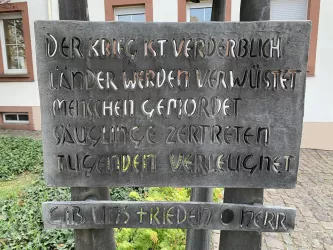 DER KRIEG IST VERDERBLICH
LÄNDER WERDEN VERWÜSTET
MENSCHEN GEMORDET
SÄUGLINGE ZERTRETEN
TUGENDEN VERLEUGNET
GIB UNS FRIEDEN ● HERR